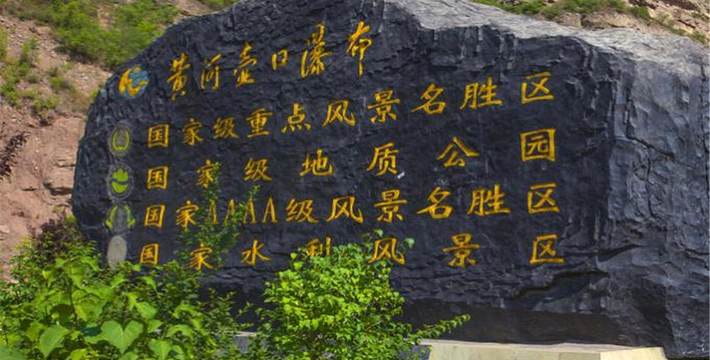 黄河壶口瀑布
国家级重点风景名胜区
国家级地质公园
国家AAAA级风景名胜区
国家水利风景区